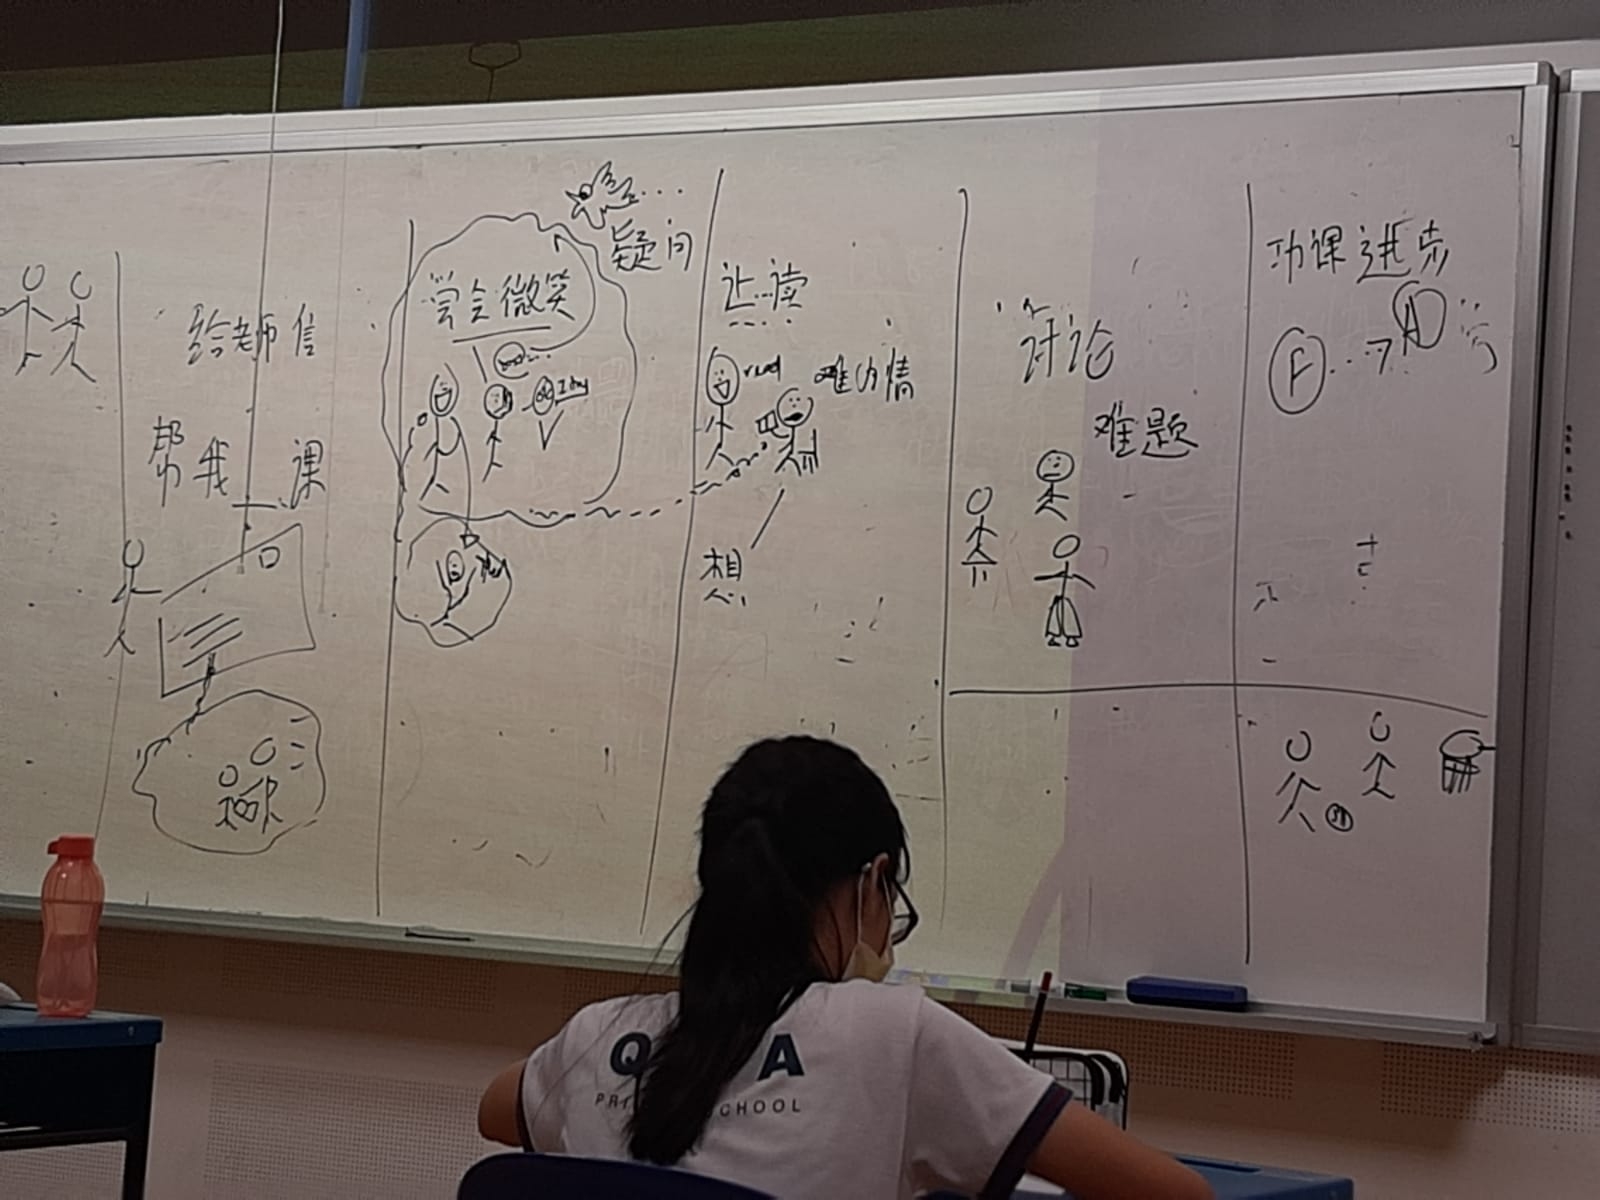 给老师信
帮我 课
学会微笑
疑问
让...读
read
难为情
想
讨论
难题
功课进步
F ...→ A
Q A
PRI SCHOOL